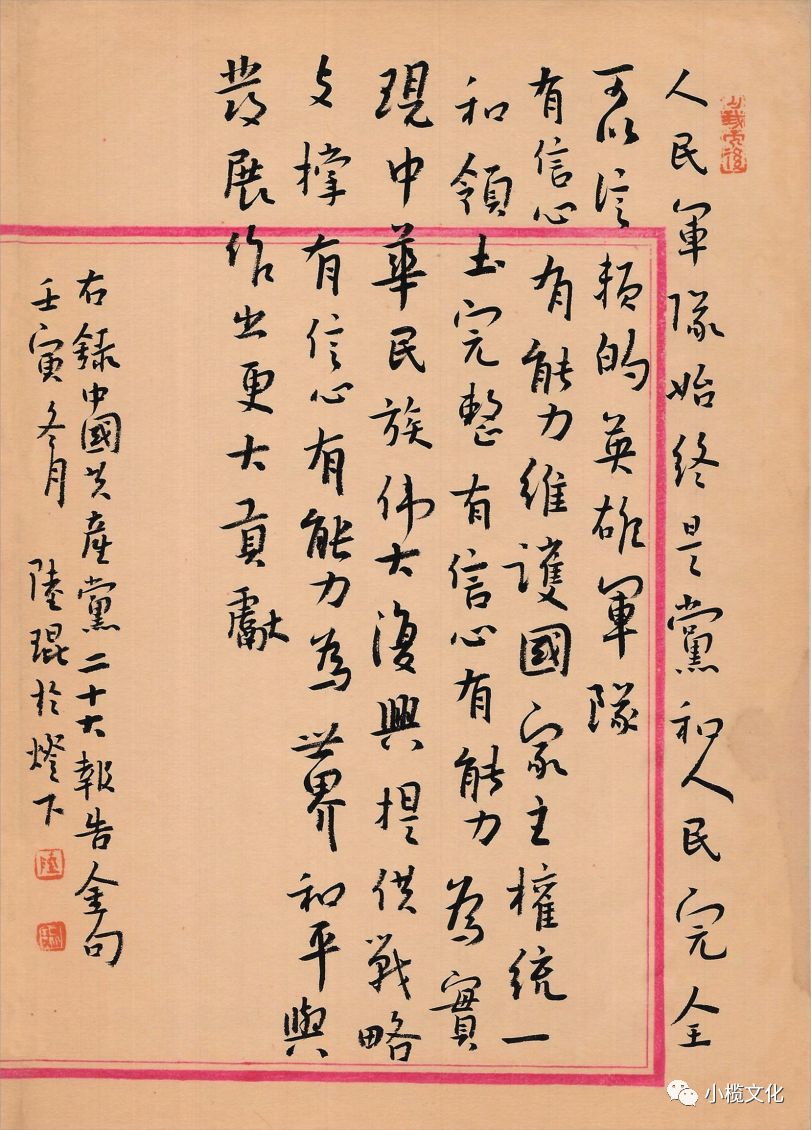 人民軍隊始終是黨和人民完全
可以信賴的英雄軍隊
有信心有能力維護國家主權統一
和領土完整有信心有能力為實
現中華民族伟大復興提供戰略
支撑有信心有能力為世界和平與
發展作出更大貢獻
右録中國共産黨二十大報告金句
壬寅冬月 陸琨於燈下
陸
小榄文化